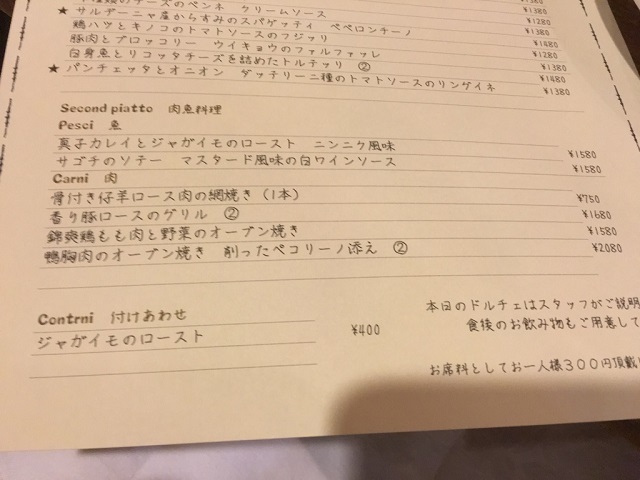 チーズのペンネ クリームソース ¥1380
★ サルデーニャ産からすみのスパゲッティ ペペロンチーノ ¥1380
鶏ハツとキノコのトマトソースのフジッリ ¥1280
豚肉とブロッコリー ウイキョウのファルファッレ ¥1380
白身魚とリコッタチーズを詰めたトルテッリ ② ¥1480
★ パンチェッタとオニオン ダッテリーニ種のトマトソースのリングイネ ¥1280
¥1380
¥1480
¥1380
Second piatto 肉魚料理
Pesci 魚
真子カレイとジャガイモのロースト ニンニク風味 ¥1580
サゴチのソテー マスタード風味の白ワインソース ¥1580
Carni 肉
骨付き仔羊ロース肉の網焼き（1本） ¥750
香り豚ロースのグリル ② ¥1680
錦爽鶏もも肉と野菜のオーブン焼き ¥1580
鴨胸肉のオーブン焼き 削ったペコリーノ添え ② ¥2080
Contrni 付けあわせ
ジャガイモのロースト ¥400
本日のドルチェはスタッフがご説明
食後のお飲み物もご用意して
お席料としてお一人様300円頂戴